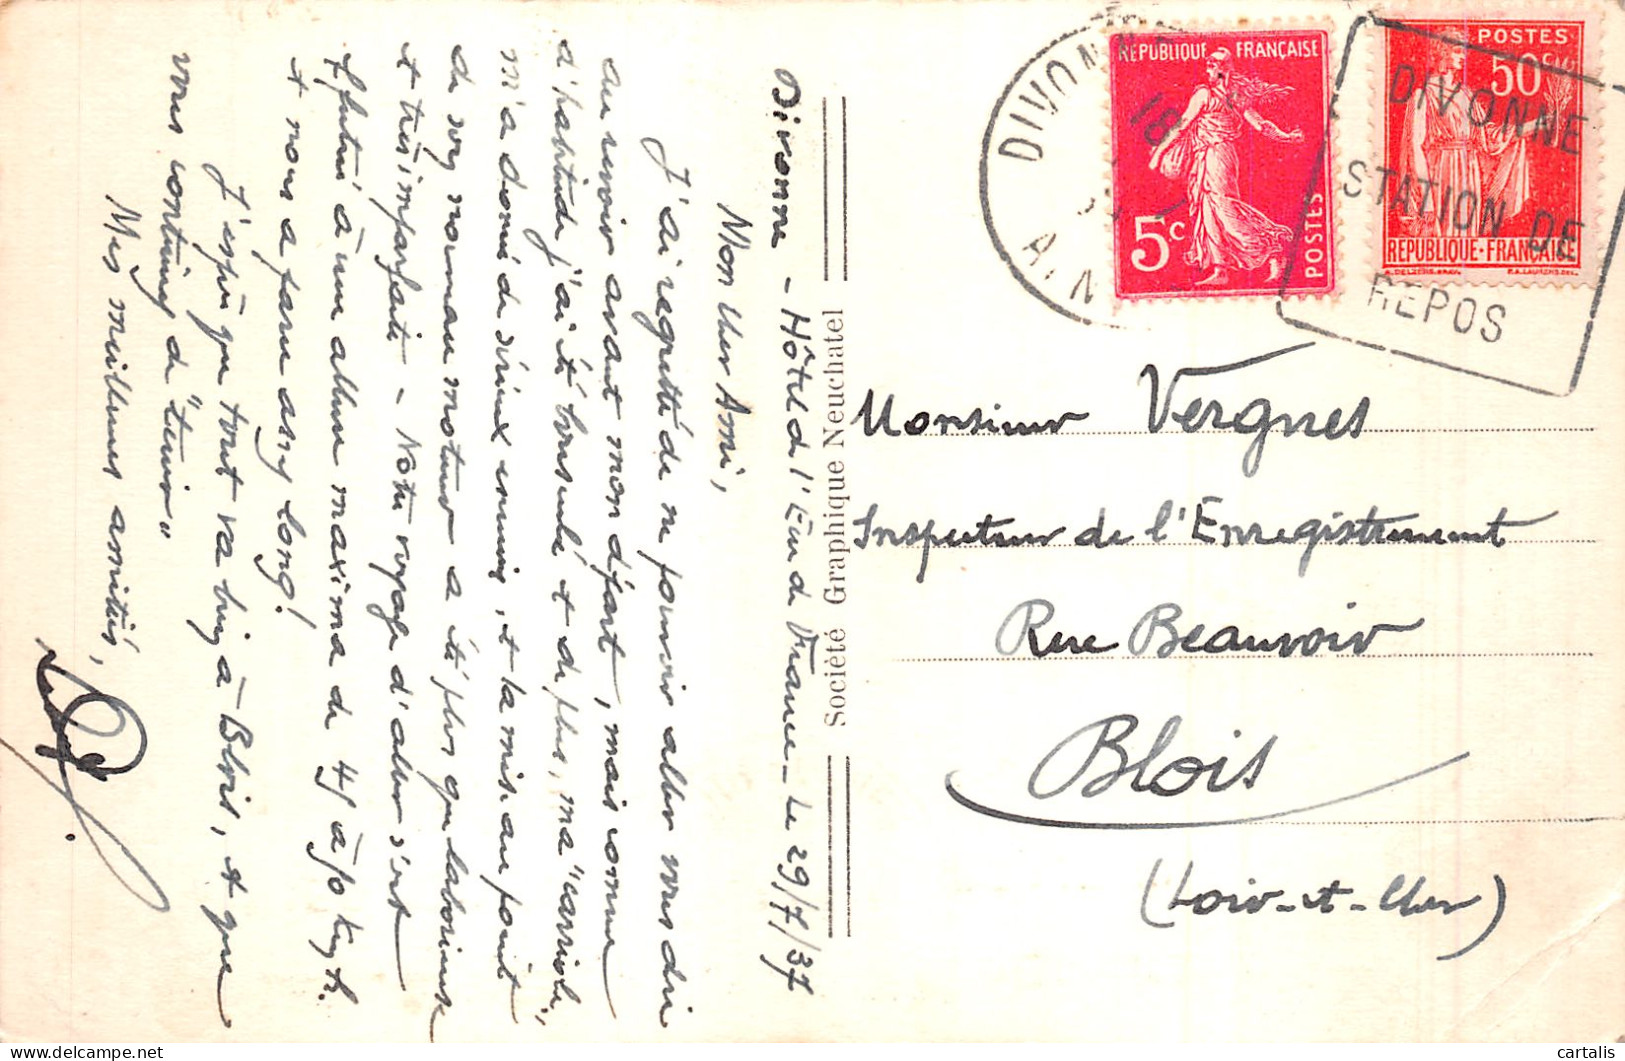 Divonne - Hôtel de l'Eau de France - Le 29/7/37
Mon cher Ami,
J'ai regretté de ne pouvoir aller vous dire
au revoir avant mon départ, mais comme
d'habitude j'ai été bousculé et de plus, ma "carriole"
m'a donné de sérieux ennuis, et la mise au point
du nouveau moteur a été plus que laborieuse
et très imparfaite - Notre voyage d'aller s'est
effectué à une allure maxima de 45 à 50 km/h.
et nous a paru assez long!
J'espère que tout va bien à Blois, et que
vous continuez à "tenir"
Mes meilleures amitiés,
Société Graphique Neuchatel
DIVONNE
18
AIN
REPUBLIQUE FRANÇAISE
5c
POSTES
POSTES
50c
REPUBLIQUE-FRANÇAISE
DIVONNE
STATION DE
REPOS
Monsieur Vergnes
Inspecteur de l'Enregistrement
Rue Beauvoir
Blois
(Loir-et-Cher)
cartalis